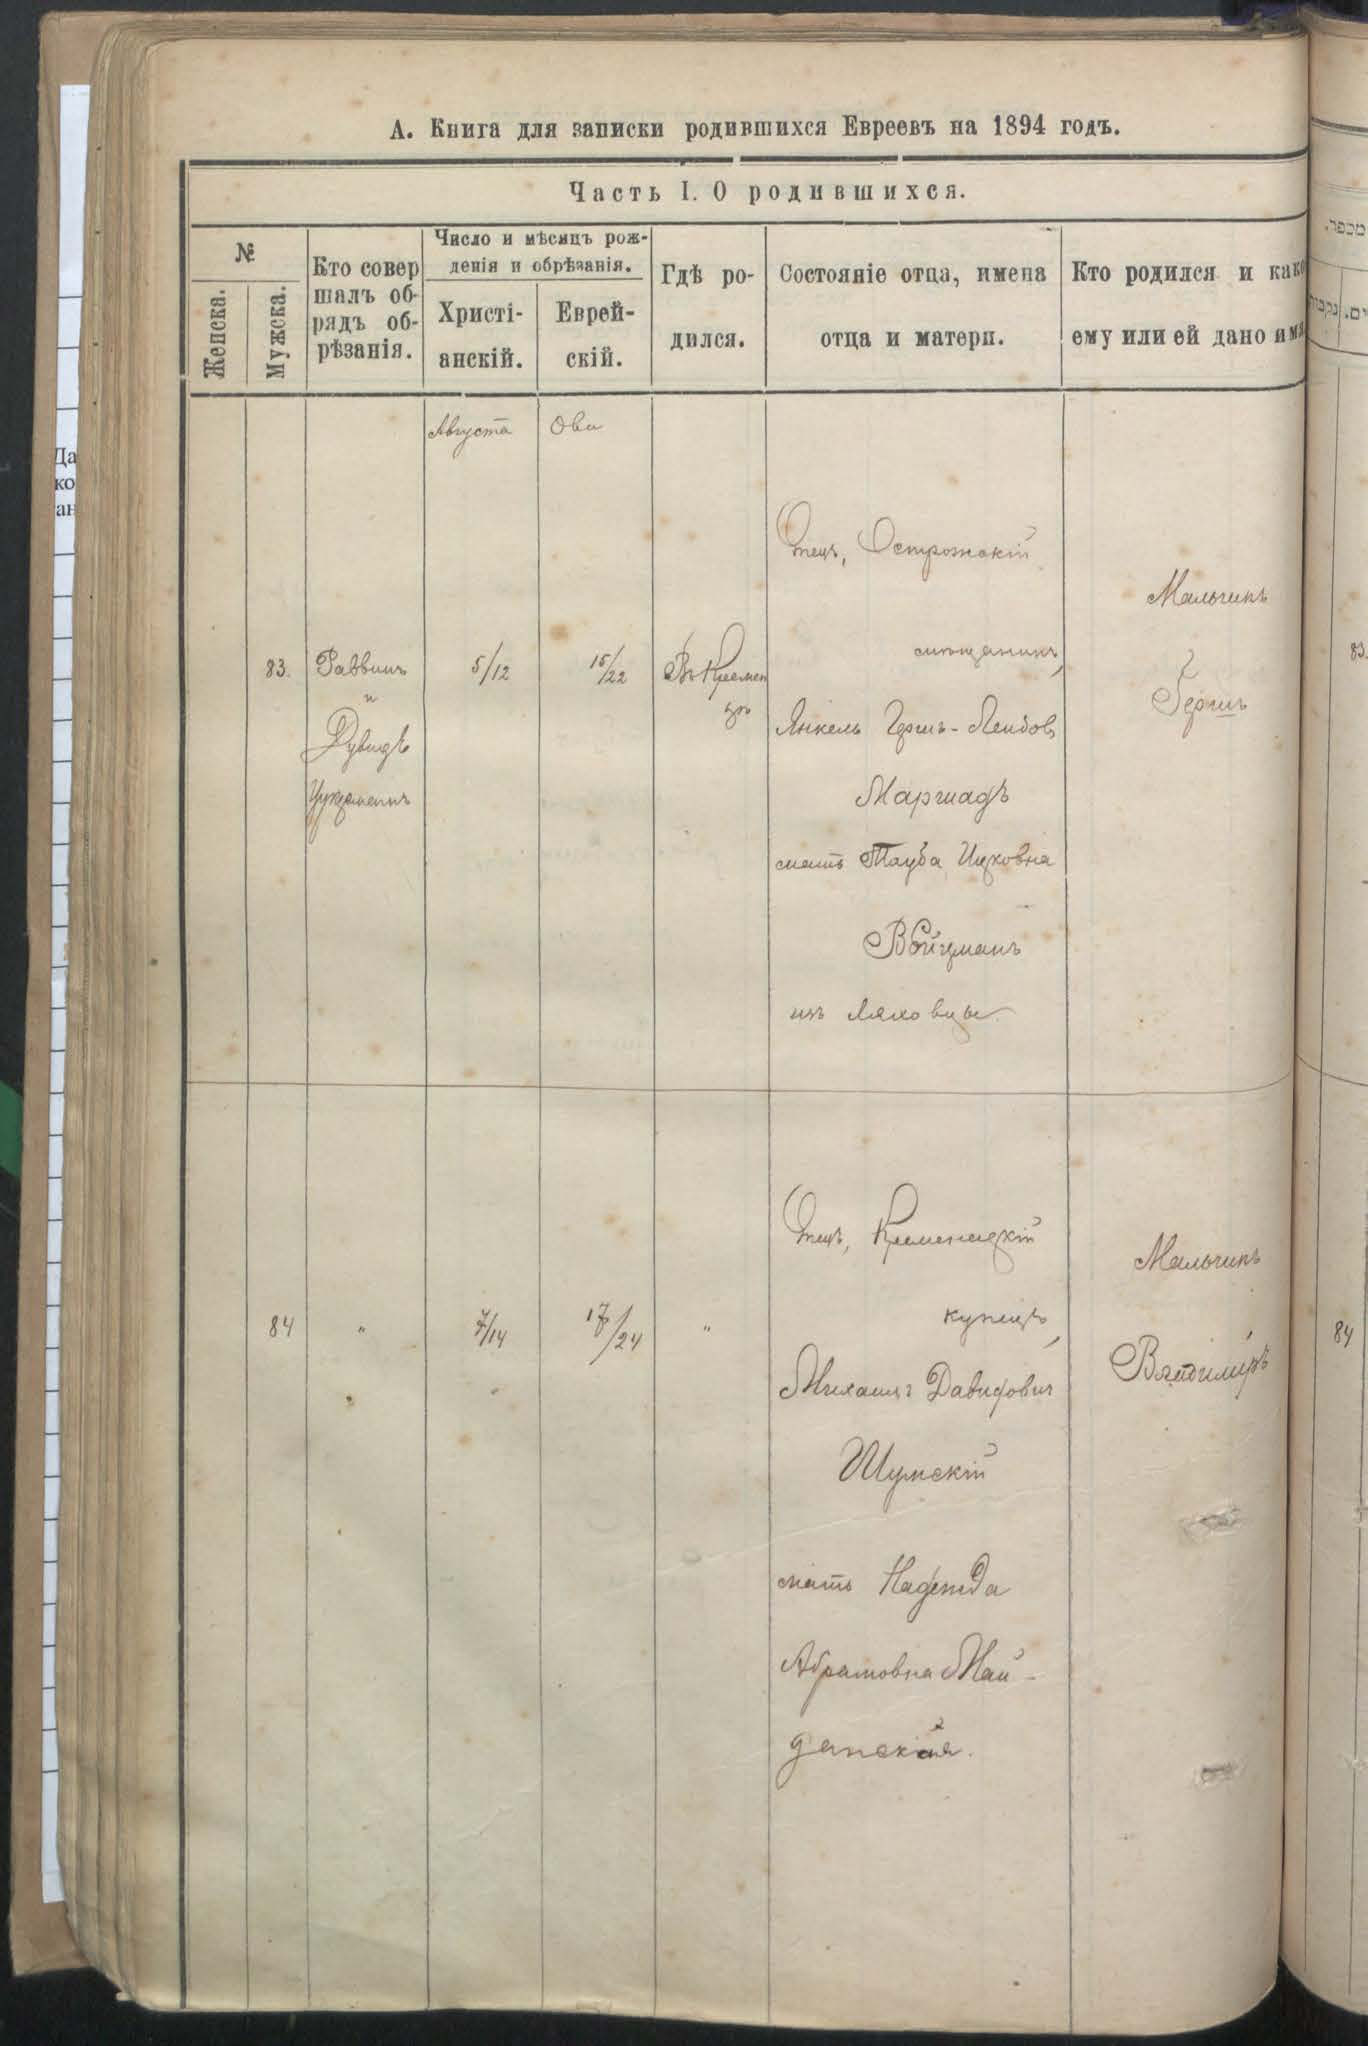 А. Книга для записки родившихся Евреевъ на 1894 годъ.
Часть I. О родившихся.
№
Женска.
Мужска.
Кто совер
шалъ об-
рядъ об-
рѣзанія.
Число и мѣсяцъ рож-
денія и обрѣзанія.
Христі-
анскій.
Еврей-
скій.
Гдѣ ро-
дился.
Состояніе отца, имена
отца и матери.
Кто родился и како
ему или ей дано имя
Августа
Ова
83.
Раввинъ
и
Дувидъ
5/12
15/22
Въ Кремен
цѣ
Отецъ, Острожскій
мѣщанинъ,
Янкель Герш-Лейбов
Маргнадъ
мать Тауба Ицковна
Войцманъ
изъ Ляховцы
Мальчикъ
Гершъ
84
"
7/14
17/24
"
Отецъ, Кременецкій
купецъ,
Михаилъ Давидович
Шумскій
мать Надежда
Абрамовна Май-
данская.
Мальчикъ
Владимиръ
מספר.
ים.
נקבות
83.
84
Да
ко
ан